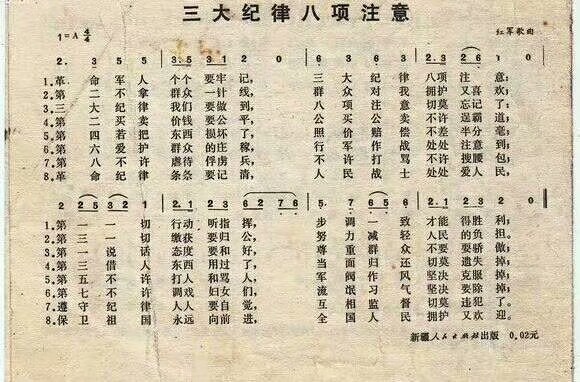 三大纪律八项注意
1=A 4/4 红军歌曲
1.革命军人个个要牢记, 三大纪律八项注意:
2.第二不拿群众一针线, 群众对我拥护又喜欢;
3.三大纪律我们要做到, 八项注意切莫忘记了;
4.第二买卖价钱要公平, 公买公卖不许逞霸道;
5.第四若把东西损坏了, 照价赔偿不差半分毫;
6.第六爱护群众的庄稼, 行军作战处处注意到;
7.第八不许虐待俘虏兵, 不许打骂不许搜腰包;
8.革命纪律条条要记清, 人民战士处处爱人民,
1.第一一切行动听指挥, 步调一致才能得胜利;
2.第三一切缴获要归公, 努力减轻人民的负担。
3.第一说话态度要和好, 尊重群众不要耍骄傲;
4.第三借人东西用过了, 当面归还切莫遗失掉;
5.第五不许打人和骂人, 军阀作风坚决克服掉;
6.第七不许调戏妇女们, 流氓习气坚决要除掉;
7.遵守纪律人人要自觉, 互相监督切莫违犯了。
8.保卫祖国永远向前进, 全国人民拥护又欢迎。
新疆人民出版社出版 0.02元